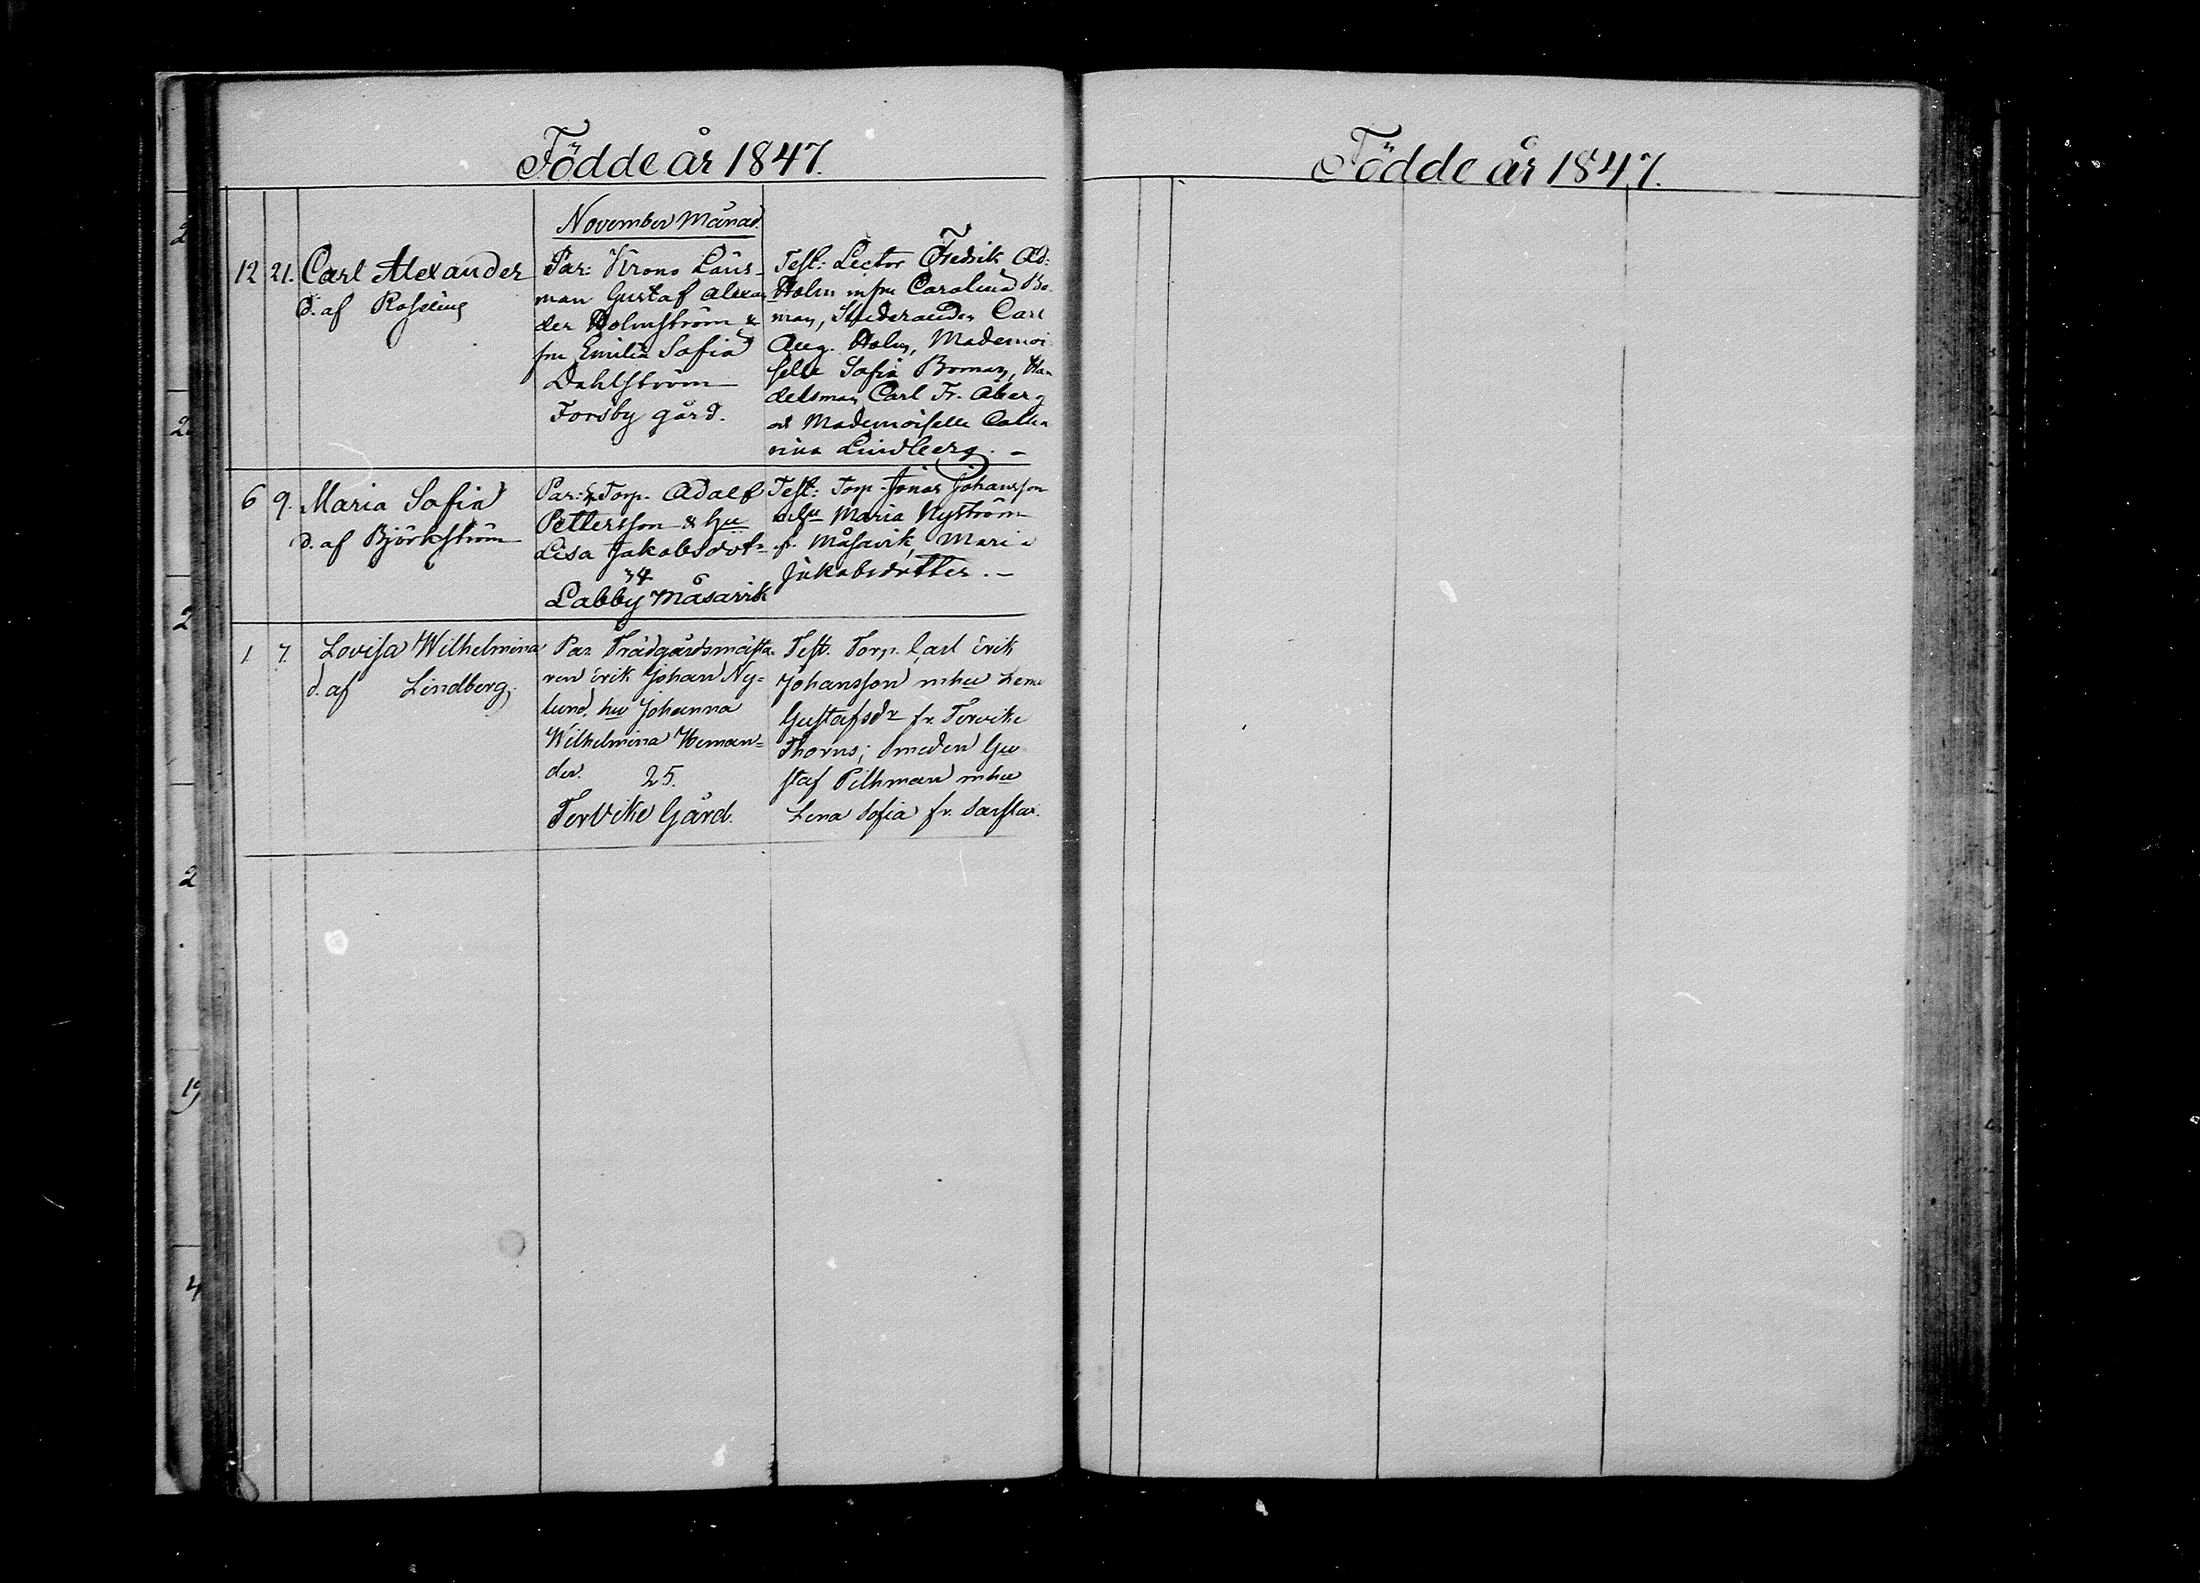 Födde år 1847.
November Månad.
12 21. Carl Alexander
d. af Roseling
Par: Krono Läns-
man Gustaf Alexan
der Holmström &
fru Emilia Sofia
Dahlström
Forsby gård.
Test: Lector Fredrik Ad:
Holm m fru Carolina Bo-
man, Studeranden Carl
Aug. Holm, Mademoi
selle Sofia Boman, Han
delsman Carl Fr. Åberg
och Mademoiselle Catha
rina Lindberg. -
6 9. Maria Sofia
d. af Björkström
Par: Torp. Adolf
Pettersson & Hu
Lisa Jakobsdotr
34
Labby Måsarvik
Test: Torp. Jonas Johansson
m hu Maria Nyström
fr. Måsarvik, Maria
Jakobsdotter. -
1. 7. Lovisa Wilhelmina
d. af Lindberg.
Par. Trädgårdsmästa-
ren Erik Johan Ny=
lund, hu Johanna
Wilhelmina Heman=
der. 25.
Tervike Gård.
Test. Torp. Carl Erik
Johansson m hu Lena
Gustafsdr fr. Tervike
Thorns; Smeden Gu
staf Pihlman m hu
Lena Sofia fr. Sarflax.
Födde år 1847.
2
2
2
2
19
4